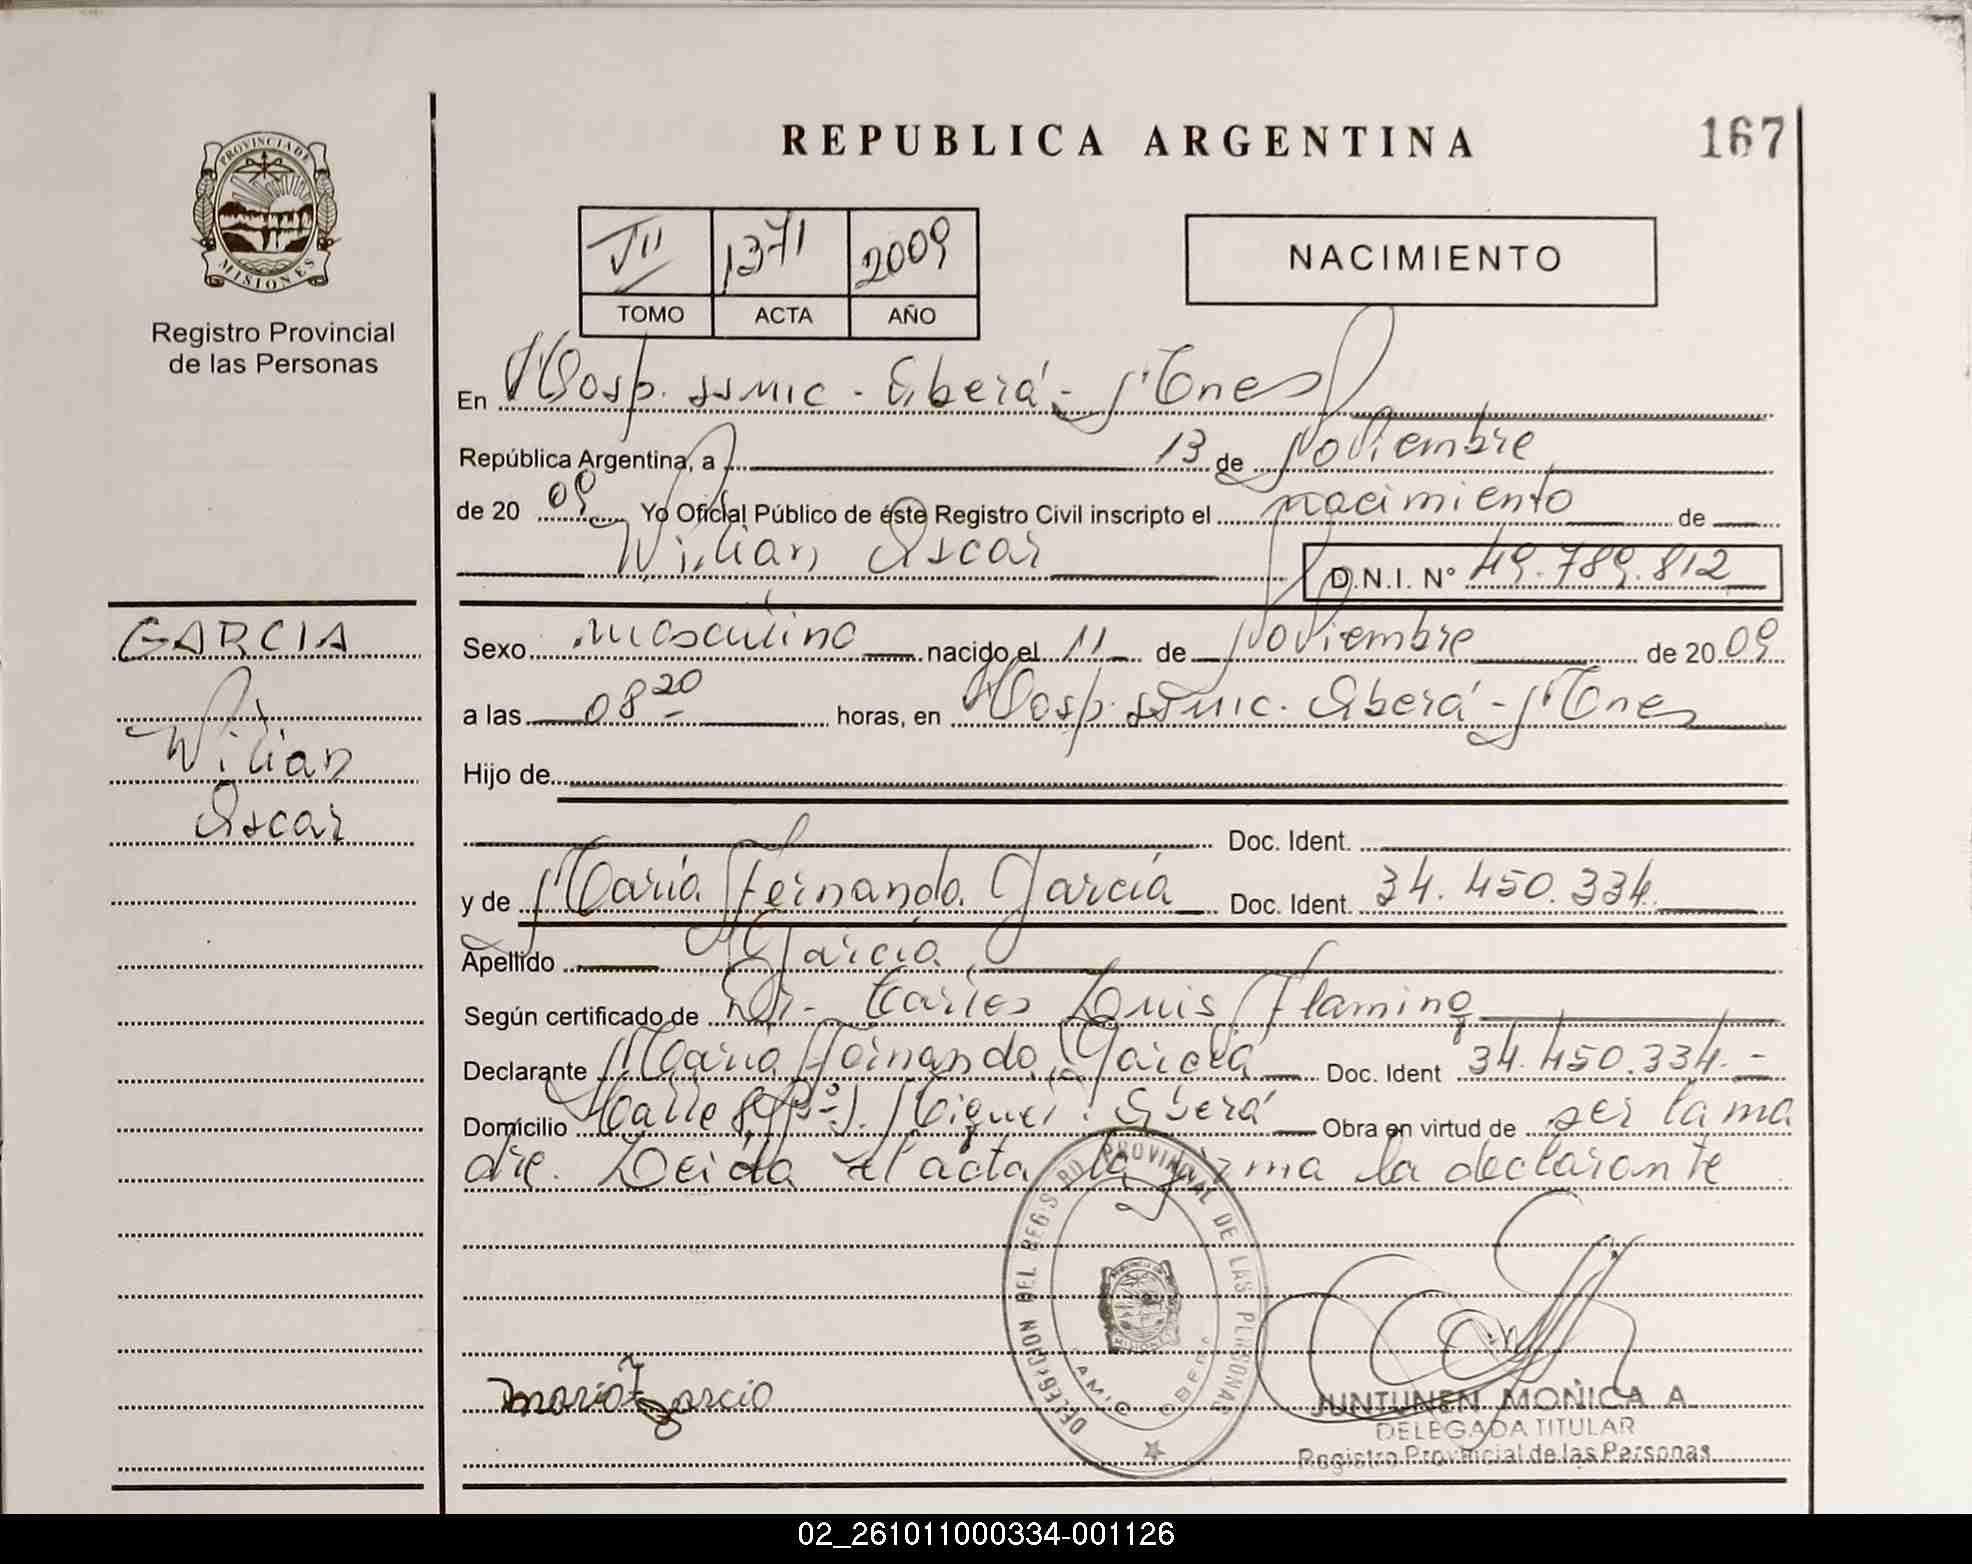 REPUBLICA ARGENTINA
167
PROVINCIA DE
MISIONES
Registro Provincial
de las Personas
VII 1371 2009
TOMO ACTA AÑO
NACIMIENTO
En Hosp. SSMIC - Oberá - Mnes
República Argentina, a 13 de Noviembre
de 20 09 Yo Oficial Público de éste Registro Civil inscripto el nacimiento de
Wilian Oscar D.N.I. N° 49.789.812
GARCIA
Wilian
Oscar
Sexo masculino nacido el 11 de Noviembre de 20 09
a las 08 20 horas, en Hosp. SSMIC. Oberá - Mnes
Hijo de
Doc. Ident.
y de María Fernanda García Doc. Ident. 34.450.334
Apellido García
Según certificado de Dr. Carlos Luis Flamino
Declarante María Fernanda García Doc. Ident 34.450.334.-
Domicilio Calle Miguel Oberá Obra en virtud de ser la ma
dre. Leída el acta la firma la declarante
DELEGACION DEL REGISTRO PROVINCIAL DE LAS PERSONAS
maria F garcia
JUNTUNEN MONICA A
DELEGADA TITULAR
Registro Provincial de las Personas
02_261011000334-001126